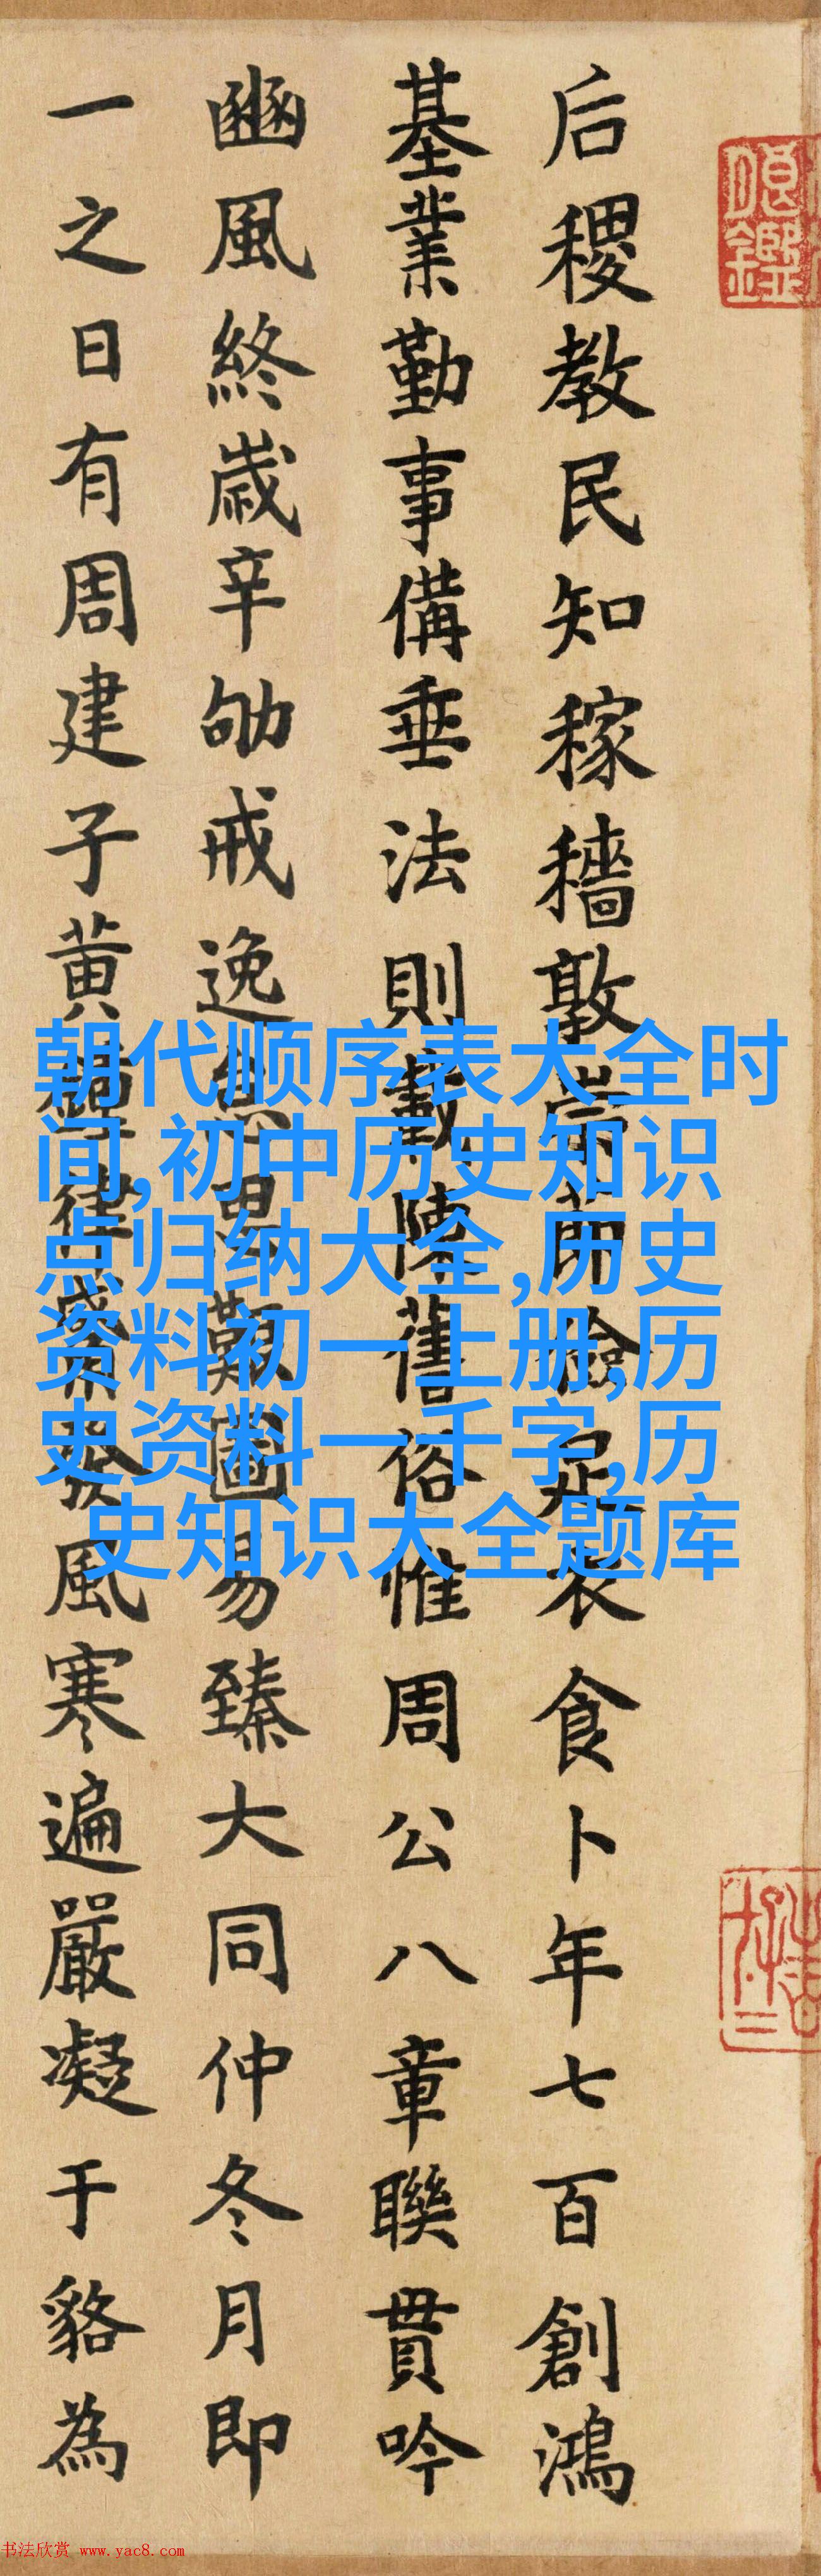 后稷教民知稼穡敦崇節儉足衣食卜年七百創鴻
基業勤事備垂法則載陳舊俗惟周公八章聯貫吟
豳風終歲辛劬戒逸思艱圖易臻大同仲冬月即
一之日有周建子黄鍾律風寒遍嚴凝于貉為
朝代顺序表大全时
间,初中历史知识
点归纳大全,历史
资料初一上册,历
史资料一千字,历
史知识大全题库
书法欣赏 www.yac8.com